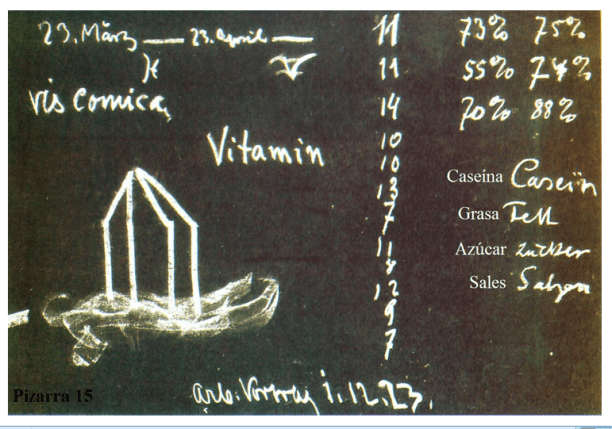 23. März — 23. April —
♓ ♈
vis comica,
Vitamin
11 73% 75%
11 55% 74%
14 70% 88%
10
10
13
7
11
8
12
9
7
Caseína Caseïn
Grasa Fett
Azúcar Zucker
Sales Salzen
Pizarra 15
Arb. Vortrag 1.12.23.